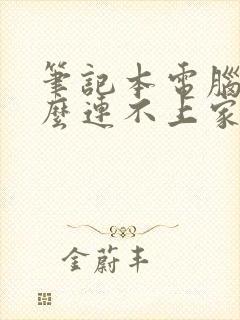 筆記本電腦
麼連不上家
金蔚丰